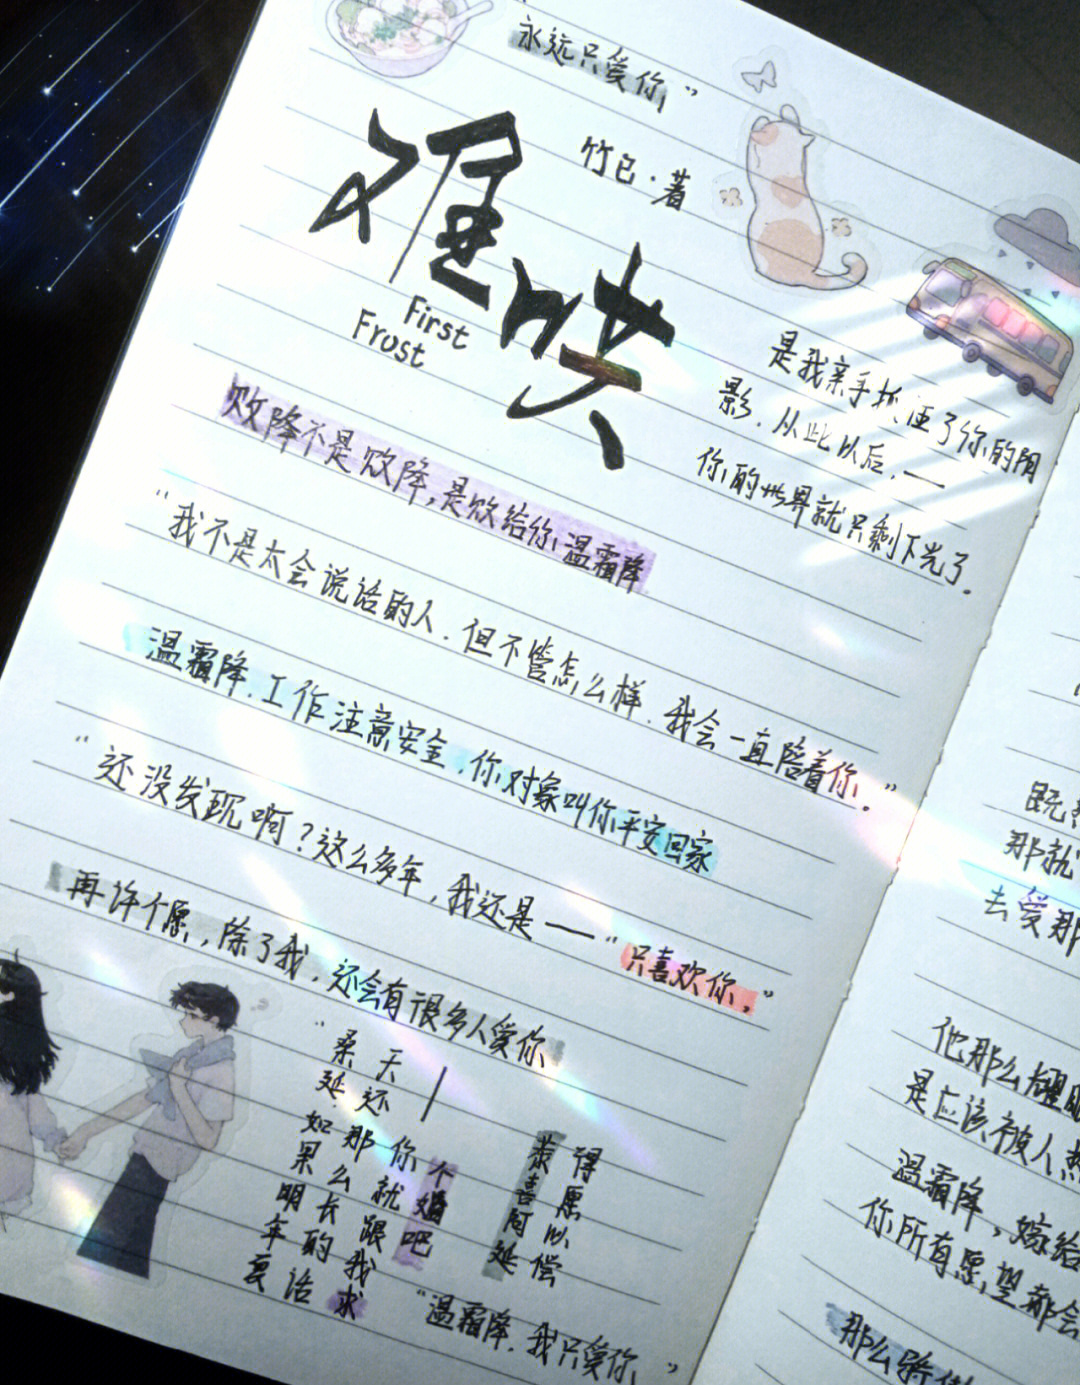 永远只爱你”
竹已·著
难哄
First
Frost
是我亲手 了你的阴
影.从此以后,——
你的世界就只剩下光了.
败降不是败降,是败给你温霜降
“我不是太会说话的人.但不管怎么样.我会一直陪着你.”
温霜降.工作注意安全.你对象叫你平安回家
“还没发现啊?这么多年,我还是——“只喜欢你.”
再许个愿,除了我.还会有很多人爱你
“桑延如果明年夏
天还那么长的话
—你就跟我求
个婚吧
恭喜阿延
得愿以偿
“温霜降.我只爱你.”
既
那就
去爱那
他那么耀眼
是应该被人
温霜降,嫁给
你所有愿望都会
那么骄